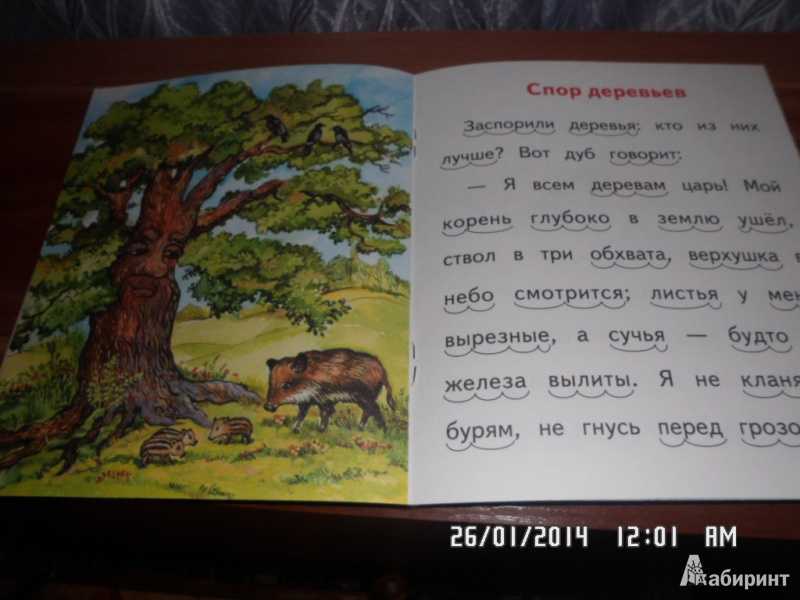 Спор деревьев
Заспорили деревья: кто из них
лучше? Вот дуб говорит:
— Я всем деревам царь! Мой
корень глубоко в землю ушёл,
ствол в три обхвата, верхушка в
небо смотрится; листья у
вырезные, а сучья — будто
железа вылиты. Я не
бурям, не гнусь перед
26/01/2014 12:01 AM
Лабиринт